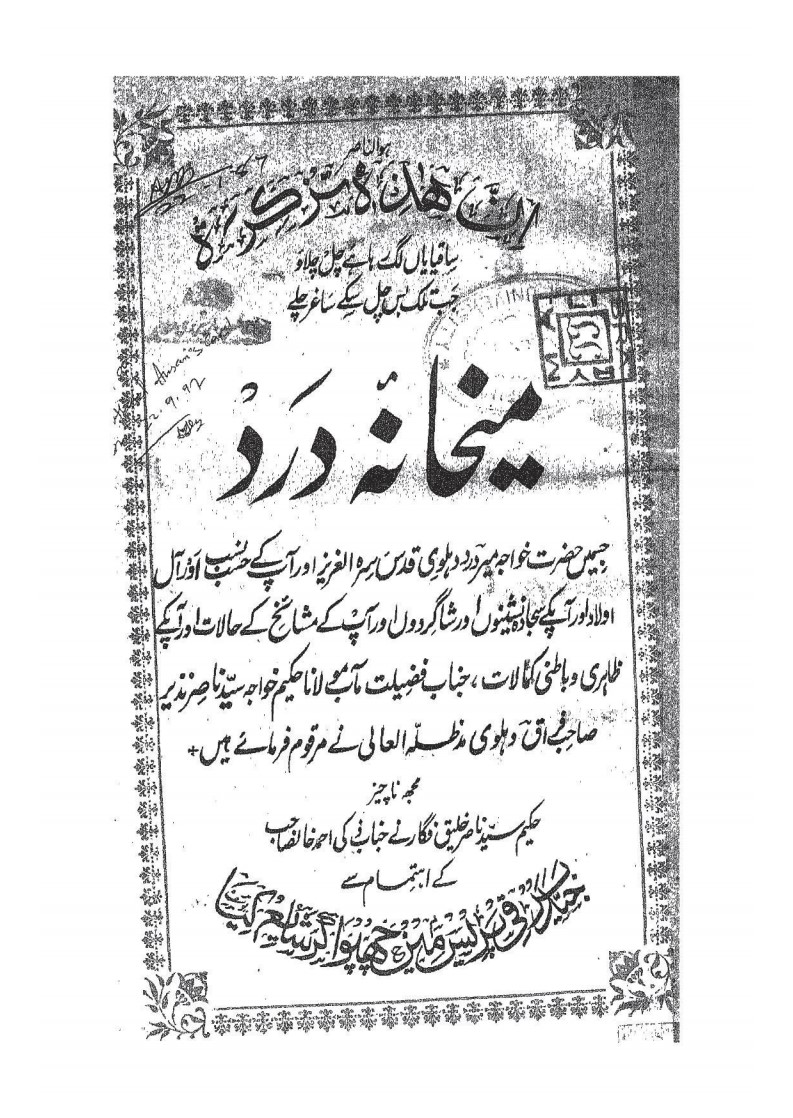 ہوالناصر
اِنَّ ھٰذِہٖ تَذْکِرَۃٌ
ساقیا یاں لگ رہا ہے چل چلاؤ
جب تلک بس چل سکے ساغر چلے
22-1-67
2.9.92
میخانۂ درد
جسمیں حضرت خواجہ میر درد دہلوی قدس سرہ العزیز اور آپ کے حسب نسب اور آل
اولاد اور آپکے سجادہ نشینوں اور شاگردوں اور آپ کے مشائخ کے حالات اور آپکے
ظاہری و باطنی کمالات، جناب فضیلت مآب مولانا حکیم خواجہ سیّد ناصر نذیر
صاحب فراق دہلوی مدظلہ العالی نے مرقوم فرمائے ہیں+
مجھ ناچیز
حکیم سیّد ناصر خلیق فگار نے جناب فی کی احمد خانصاحب
کے اہتمام سے
جید برقی پریس میں چھپوا کر شائع کیا